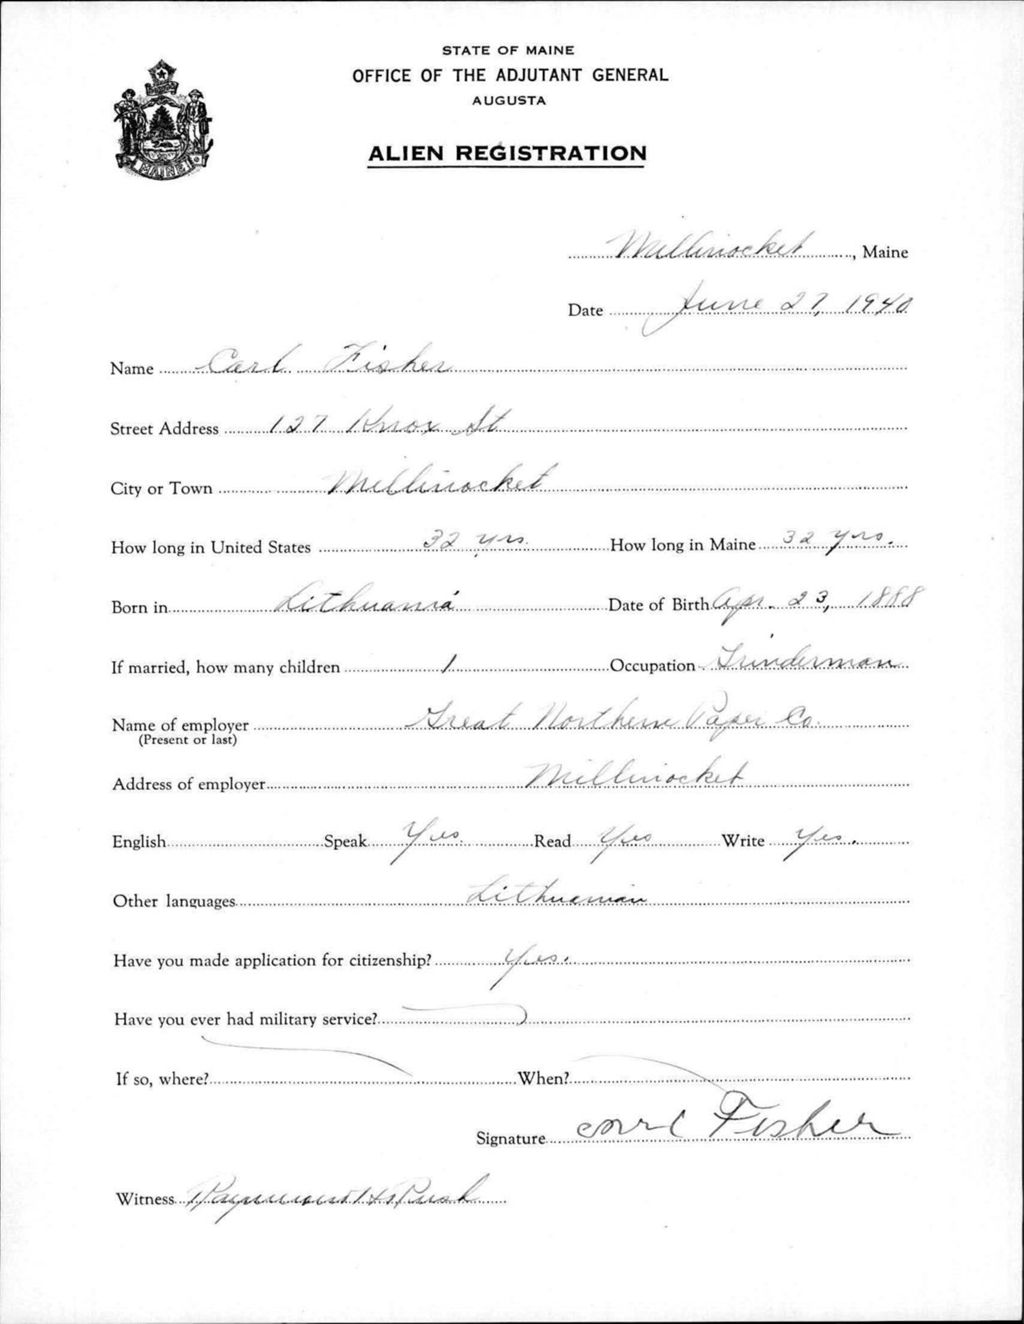 STATE OF MAINE
OFFICE OF THE ADJUTANT GENERAL
AUGUSTA
ALIEN REGISTRATION
MAINE
Millinocket, Maine
Date June 27, 1940
Name Carl Fisher
Street Address 127 Knox St
City or Town Millinocket
How long in United States 32 yrs. How long in Maine 32 yrs.
Born in Lithuania Date of Birth Apr. 23, 1888
If married, how many children 1 Occupation Grinderman
Name of employer Great Northern Paper Co.
(Present or last)
Address of employer Millinocket
English Speak Yes. Read Yes Write Yes.
Other languages Lithuanian
Have you made application for citizenship? Yes.
Have you ever had military service?
If so, where? When?
Signature Carl Fisher
Witness Raymond H Rush